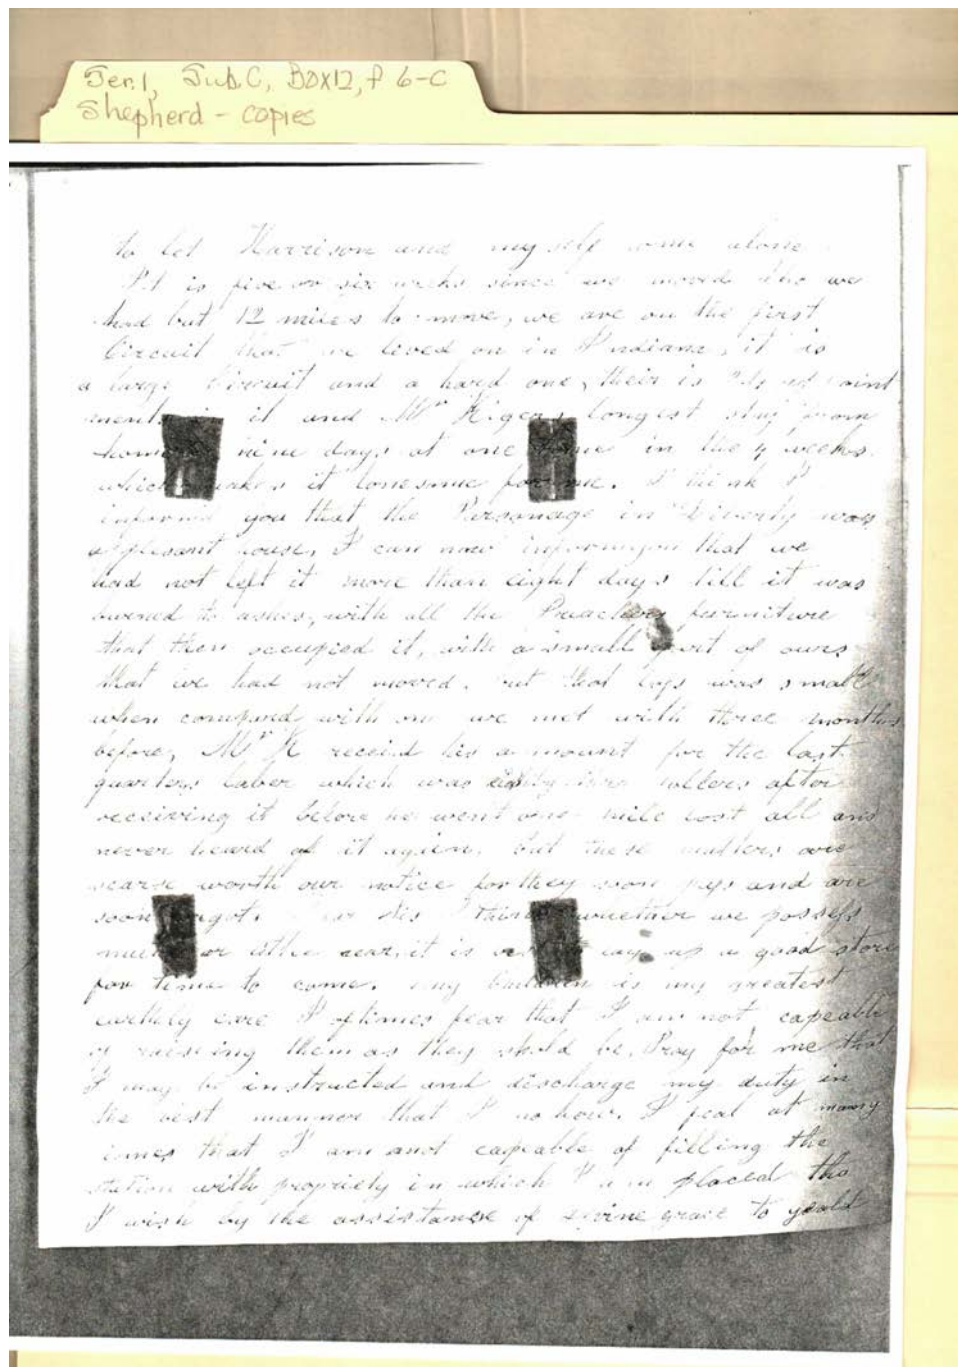 Ser.1, Sub.C, Box12, f 6-C
Shepherd - copies
to let Harrison and my self come alone
It is five or six weeks since we moved tho we
had but 12 miles to move, we are on the first
Circuit that we lived on in Indiana, it is
a large Circuit and a hard one, their is
it and Mr longest stay from
home nine days at one time in the 4 weeks
which makes it lonesome for me. I think I
informd you that the Parsonage in was
a plesant house, I can now inform you that we
had not left it more than eight days till it was
burned to ashes, with all the Preachers furniture
that then occupied it, with a small part of ours
that we had not moved. but that loss was small
when compard with one we met with three months
before, Mr K receivd his amount for the last
quarters laber which was dollers after
receiving it before he went one mile lost all and
never heard of it again, but these matters are
scarse worth our notice for they soon pass and are
soon forgot. whether we possess
much or it is up a good store
for time to come. my Children is my greatest
earthly care I oftimes fear that I am not capeable
of raising them as they shold be, Pray for me that
I may be instructed and discharge my duty in
the best manner that I no how. I feal at many
times that I am not capeable of filling the
station with propriety in which I am placed tho
I wish by the assistance of divine grace to yeald